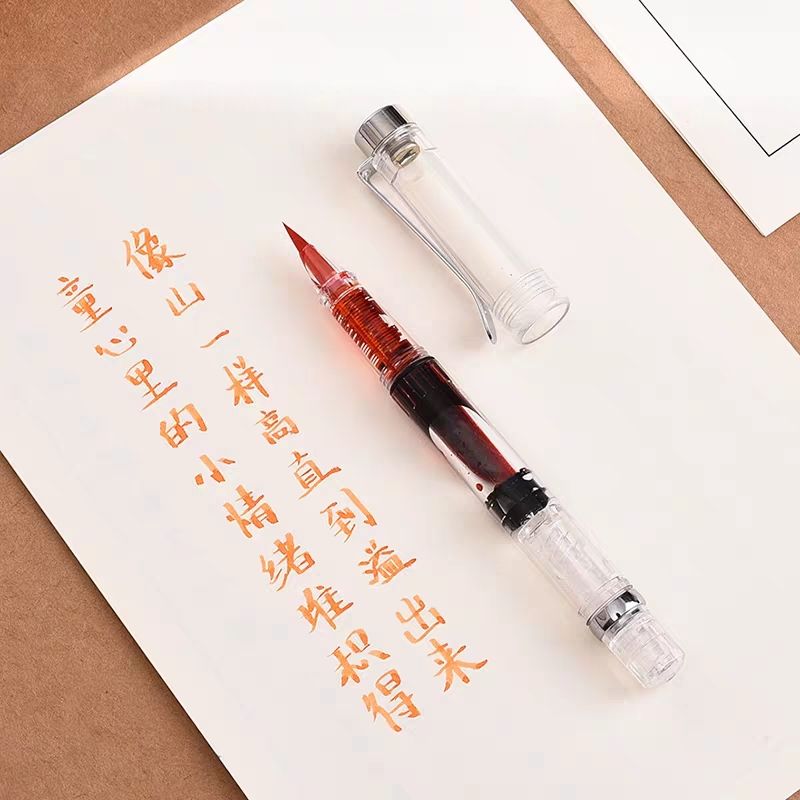 童心里的小情绪堆积得
像山一样高直到溢出来